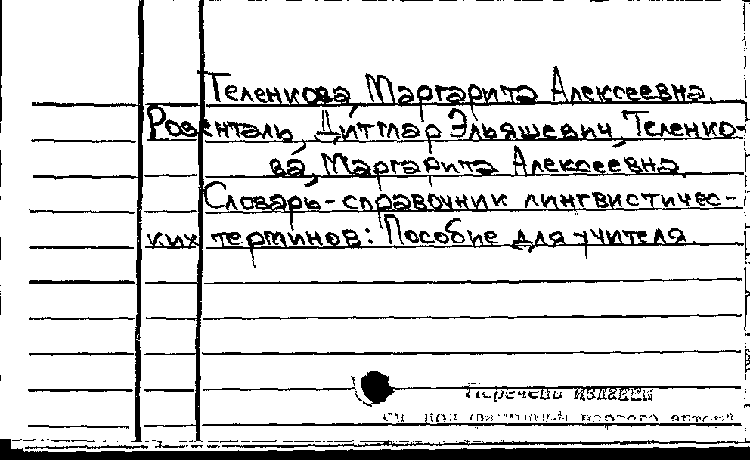 Теленкова, Маргарита Алексеевна.
Розенталь, Дитмар Эльяшевич, Теленко-
ва, Маргарита Алексеевна.
Словарь-справочник лингвистичес-
ких терминов: Пособие для учителя.
Перечень изданий
см. под фамилией первого автора